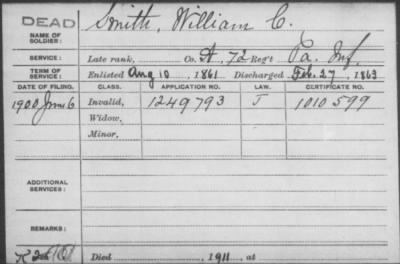 DEAD
Smith, William C.
NAME OF SOLDIER:
SERVICE: Late rank, Co. A, 72 Reg't Pa. Inf.
TERM OF SERVICE: Enlisted Aug 10, 1861 Discharged Feb. 27, 1863
DATE OF FILING. CLASS. APPLICATION NO. LAW. CERTIFICATE NO.
1900 June 6 Invalid, 1249793 J 1010599
Widow,
Minor,
ADDITIONAL SERVICES:
REMARKS:
Died 1911, at